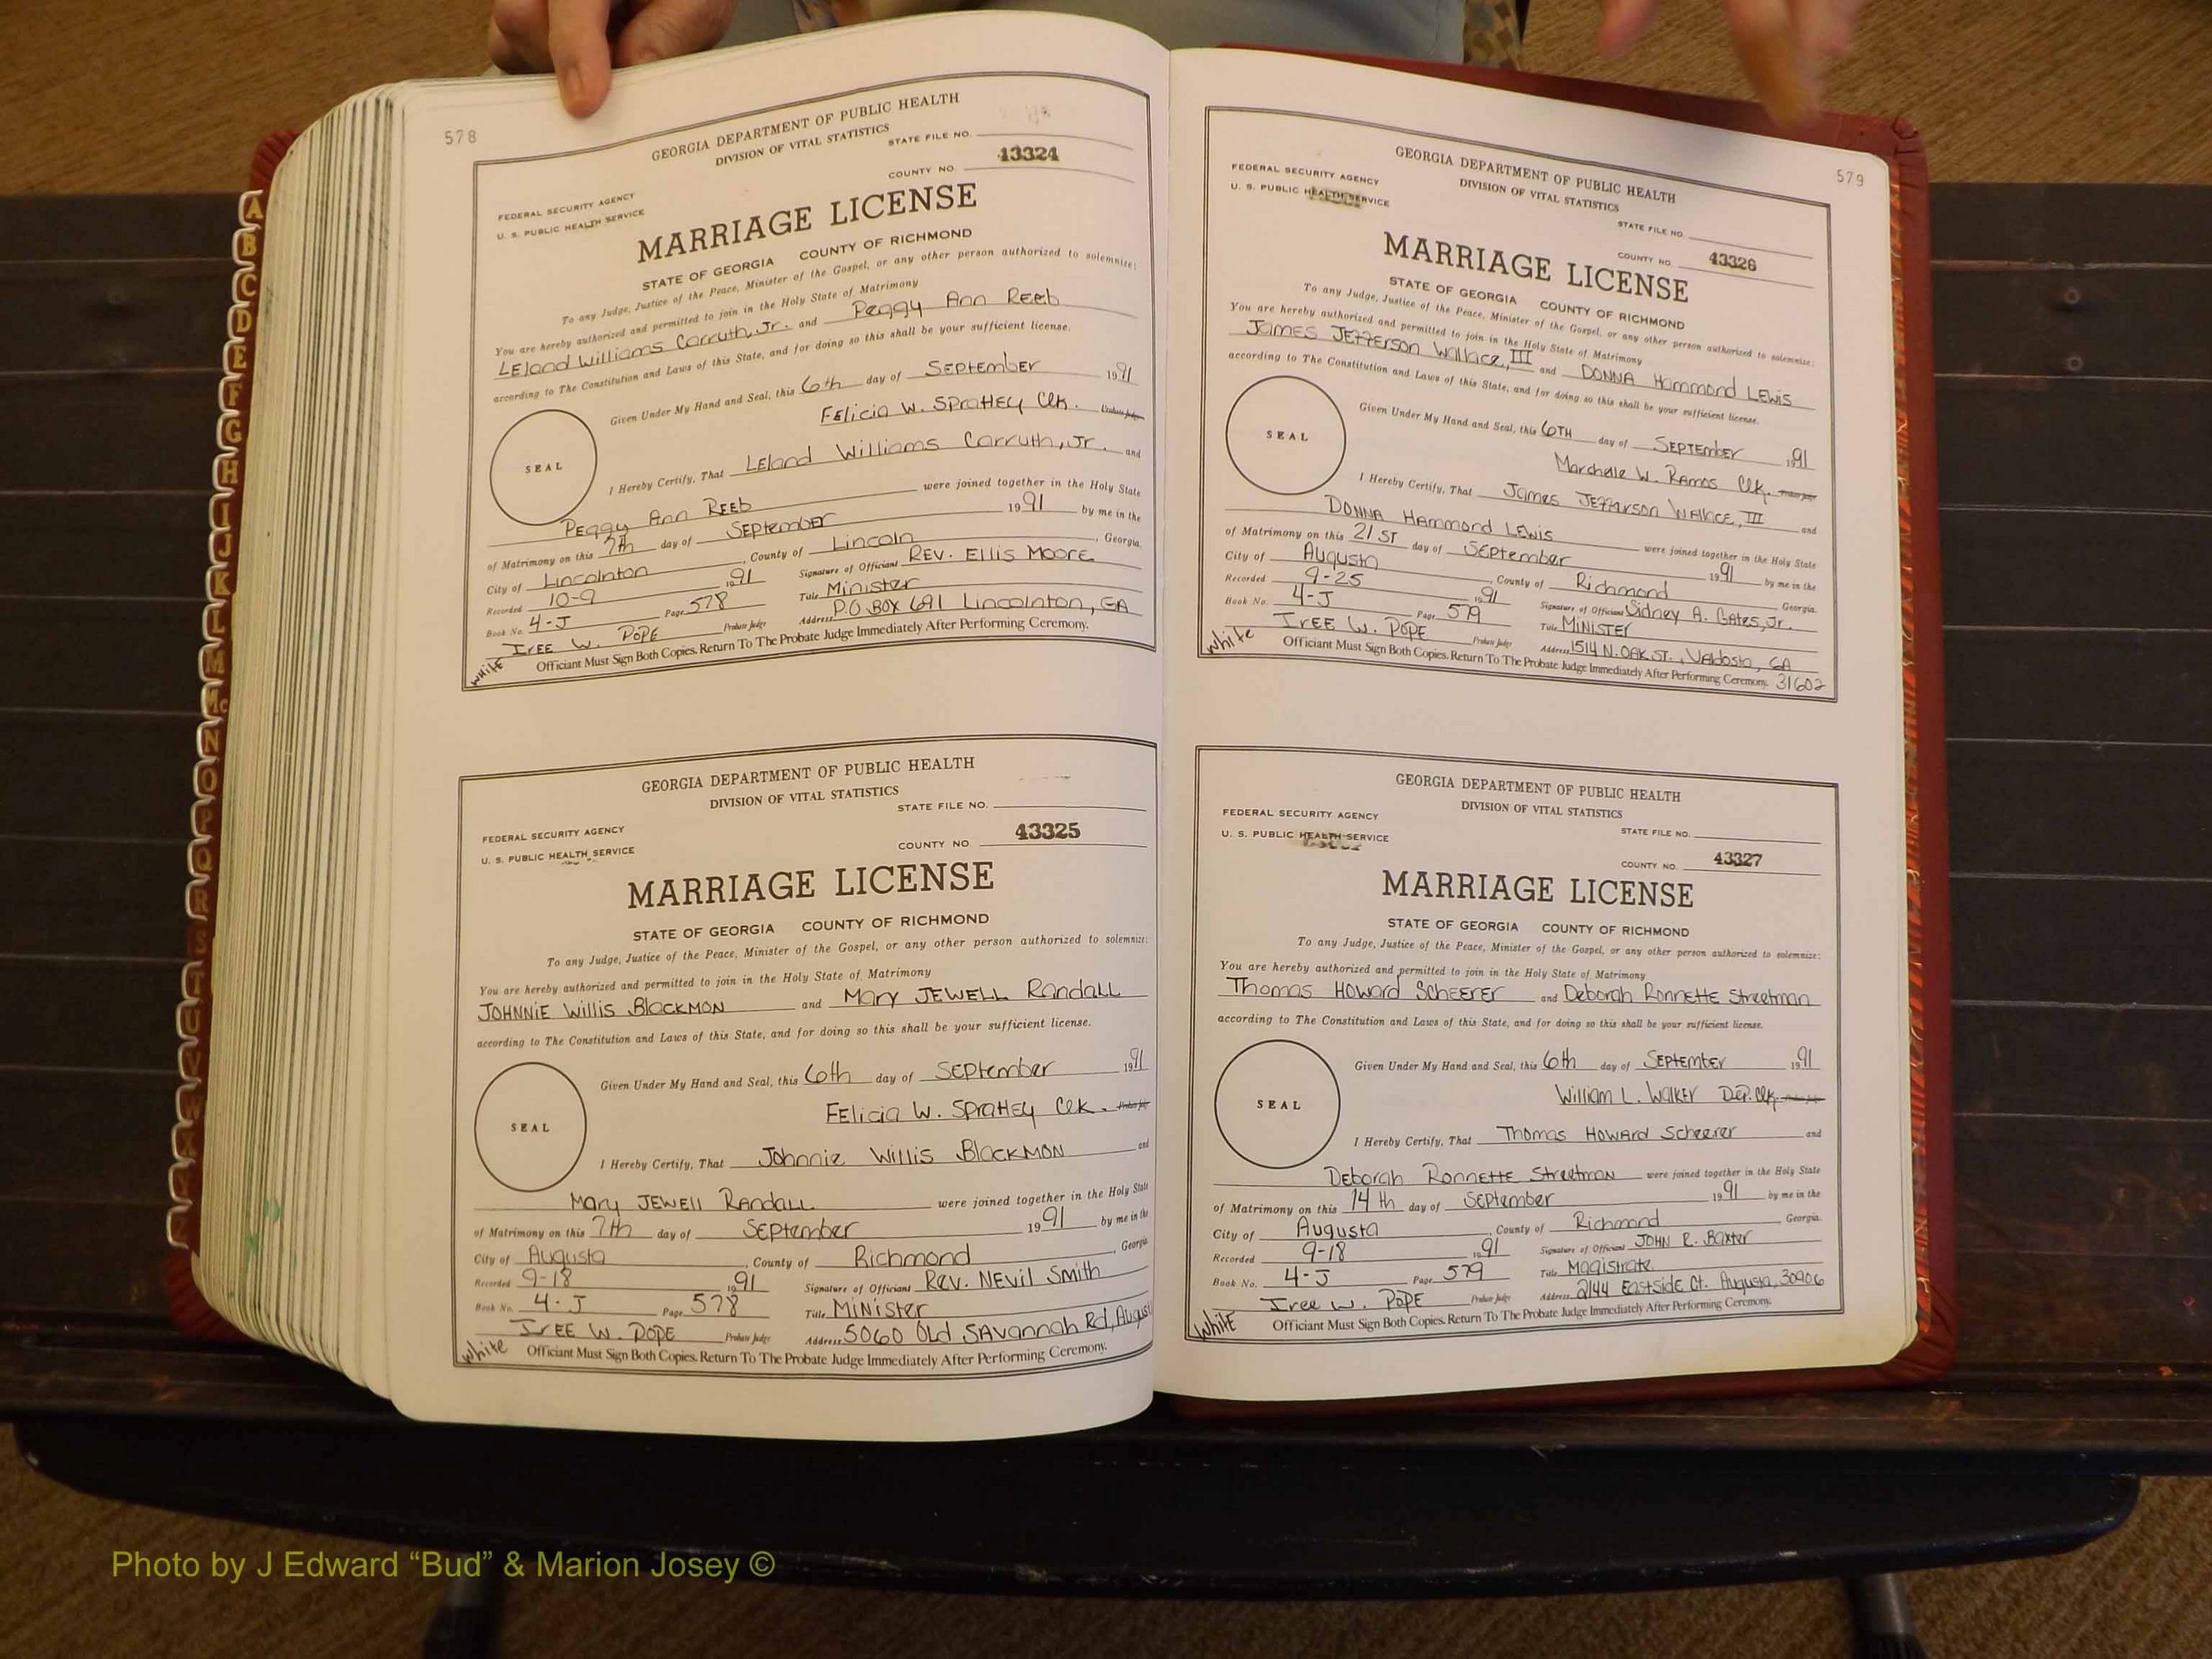 578
GEORGIA DEPARTMENT OF PUBLIC HEALTH
DIVISION OF VITAL STATISTICS
STATE FILE NO.
COUNTY NO. 43324
FEDERAL SECURITY AGENCY
U. S. PUBLIC HEALTH SERVICE
MARRIAGE LICENSE
STATE OF GEORGIA COUNTY OF RICHMOND
To any Judge, Justice of the Peace, Minister of the Gospel, or any other person authorized to solemnize:
You are hereby authorized and permitted to join in the Holy State of Matrimony
Leland Williams Carruth, Jr. and Peggy Ann Reeb
according to The Constitution and Laws of this State, and for doing so this shall be your sufficient license.
Given Under My Hand and Seal, this 6th day of September 1991
Felicia W. Spratley Clk. Probate Judge
SEAL
I Hereby Certify, That Leland Williams Carruth, Jr. and
Peggy Ann Reeb were joined together in the Holy State
of Matrimony on this 7th day of September 1991 by me in the
City of Lincolnton, County of Lincoln, Georgia.
Recorded 10-9 1991 Signature of Officiant Rev. Ellis Moore
Book No. 4-J Page 578 Title Minister
Iree W. Pope Probate Judge Address P.O Box 691 Lincolnton, GA
White Officiant Must Sign Both Copies. Return To The Probate Judge Immediately After Performing Ceremony.
GEORGIA DEPARTMENT OF PUBLIC HEALTH
DIVISION OF VITAL STATISTICS
STATE FILE NO.
COUNTY NO. 43325
FEDERAL SECURITY AGENCY
U. S. PUBLIC HEALTH SERVICE
MARRIAGE LICENSE
STATE OF GEORGIA COUNTY OF RICHMOND
To any Judge, Justice of the Peace, Minister of the Gospel, or any other person authorized to solemnize:
You are hereby authorized and permitted to join in the Holy State of Matrimony
Johnnie Willis Blackmon and Mary Jewell Randall
according to The Constitution and Laws of this State, and for doing so this shall be your sufficient license.
Given Under My Hand and Seal, this 6th day of September 1991
Felicia W. Spratley Clk. Probate Judge
SEAL
I Hereby Certify, That Johnnie Willis Blackmon and
Mary Jewell Randall were joined together in the Holy State
of Matrimony on this 7th day of September 1991 by me in the
City of Augusta, County of Richmond, Georgia
Recorded 9-18 1991 Signature of Officiant Rev. Nevil Smith
Book No. 4-J Page 578 Title Minister
Iree W. Pope Probate Judge Address 5060 Old Savannah Rd, August
White Officiant Must Sign Both Copies. Return To The Probate Judge Immediately After Performing Ceremony.
579
GEORGIA DEPARTMENT OF PUBLIC HEALTH
DIVISION OF VITAL STATISTICS
FEDERAL SECURITY AGENCY
U. S. PUBLIC HEALTH SERVICE
STATE FILE NO.
COUNTY NO. 43326
MARRIAGE LICENSE
STATE OF GEORGIA COUNTY OF RICHMOND
To any Judge, Justice of the Peace, Minister of the Gospel, or any other person authorized to solemnize:
You are hereby authorized and permitted to join in the Holy State of Matrimony
James Jefferson Wallace, III and Donna Hammond Lewis
according to The Constitution and Laws of this State, and for doing so this shall be your sufficient license.
Given Under My Hand and Seal, this 6th day of September 1991
Marchelle W. Ramos Clk. Probate Judge
SEAL
I Hereby Certify, That James Jefferson Wallace, III and
Donna Hammond Lewis were joined together in the Holy State
of Matrimony on this 21st day of September 1991 by me in the
City of Augusta, County of Richmond Georgia.
Recorded 9-25 1991 Signature of Officiant Sidney A. Gates, Jr.
Book No. 4-J Page 579 Title Minister
Iree W. Pope Probate Judge Address 1514 N. Oak St., Valdosta, GA
White Officiant Must Sign Both Copies. Return To The Probate Judge Immediately After Performing Ceremony. 31602
GEORGIA DEPARTMENT OF PUBLIC HEALTH
DIVISION OF VITAL STATISTICS
FEDERAL SECURITY AGENCY
U. S. PUBLIC HEALTH SERVICE
STATE FILE NO.
COUNTY NO. 43327
MARRIAGE LICENSE
STATE OF GEORGIA COUNTY OF RICHMOND
To any Judge, Justice of the Peace, Minister of the Gospel, or any other person authorized to solemnize:
You are hereby authorized and permitted to join in the Holy State of Matrimony
Thomas Howard Scheerer and Deborah Ronnette Streetman
according to The Constitution and Laws of this State, and for doing so this shall be your sufficient license.
Given Under My Hand and Seal, this 6th day of September 1991
William L. Walker Dep. Clk. Probate Judge
SEAL
I Hereby Certify, That Thomas Howard Scheerer and
Deborah Ronnette Streetman were joined together in the Holy State
of Matrimony on this 14th day of September 1991 by me in the
City of Augusta, County of Richmond, Georgia.
Recorded 9-18 1991 Signature of Officiant John R. Baxter
Book No. 4-J Page 579 Title Magistrate
Iree W. Pope Probate Judge Address 2144 Eastside Ct. Augusta, 30906
White Officiant Must Sign Both Copies. Return To The Probate Judge Immediately After Performing Ceremony.
A
B
C
D
E
F
G
H
I
J
K
L
M
Mc
N
O
P
Q
R
S
T
U
V
W
Photo by J Edward “Bud” & Marion Josey ©